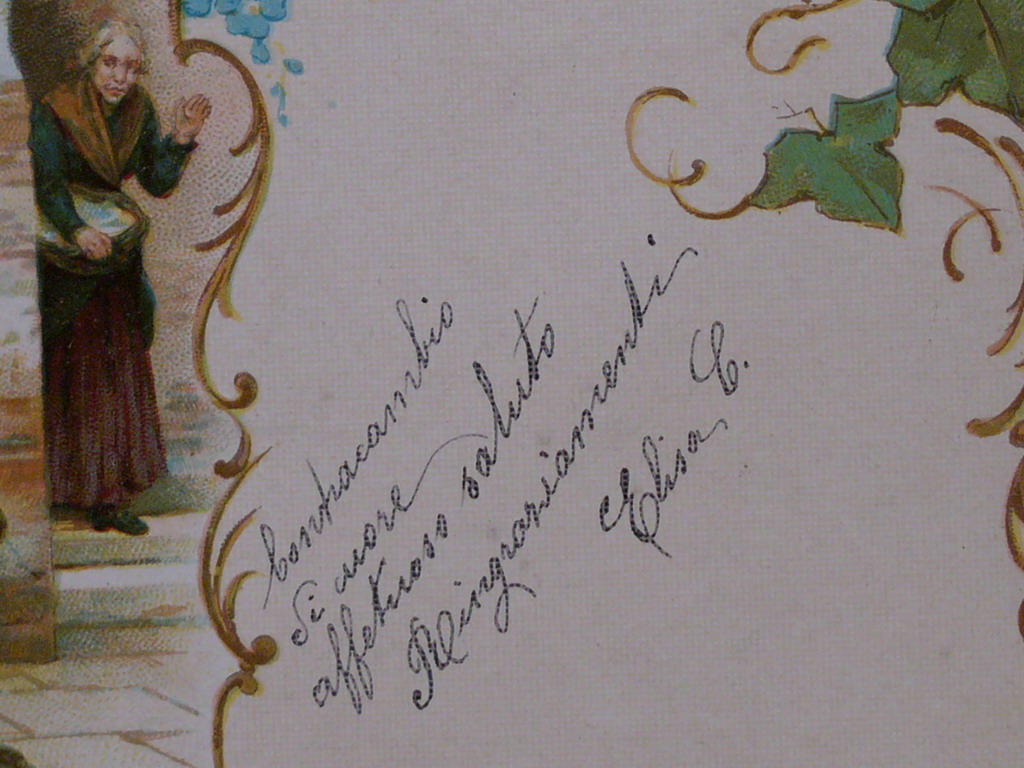 Contracambio
di cuore
affettuoso saluto
Ringraziamenti
Elisa C.